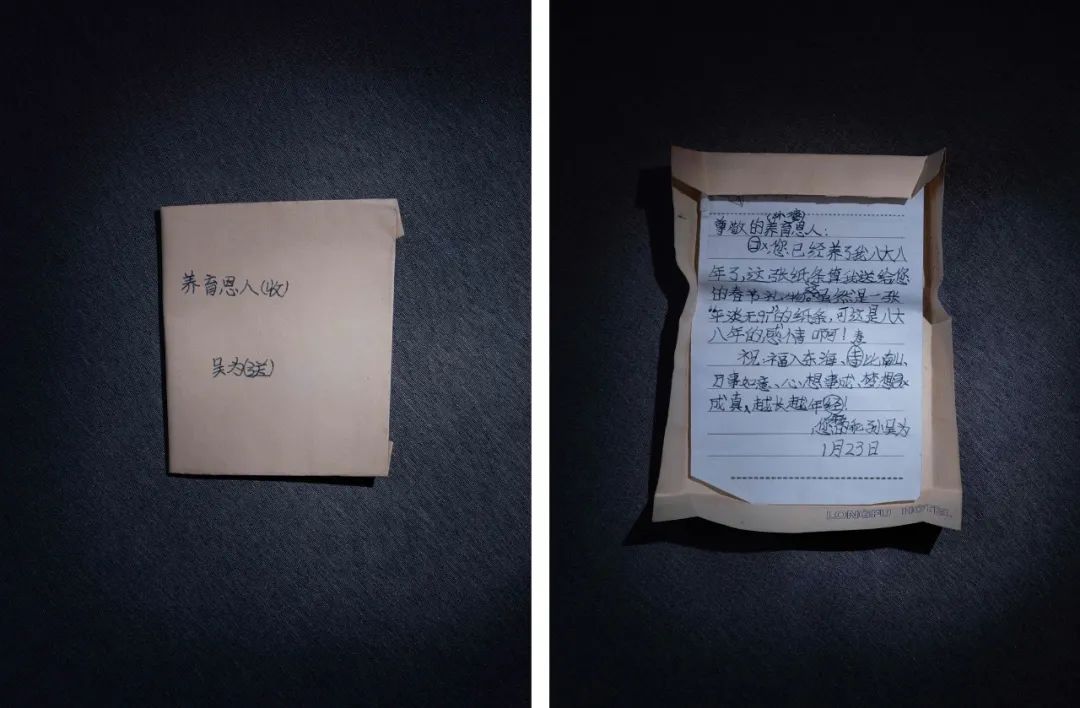 养育恩人(收)
吴为(送)
(外婆)
尊敬的养育恩人:
您已经养了我八大八
年了,这张纸条算我送给您
的春节礼物。虽然是一张
"年淡无奇"的纸条,可这是八大
八年的感情啊!
祝:福入东海、寿比南山、
万事如意、心想事成、梦想
成真,越长越年轻!
您的 孙吴为
1月23日
LONGFU HOTEL